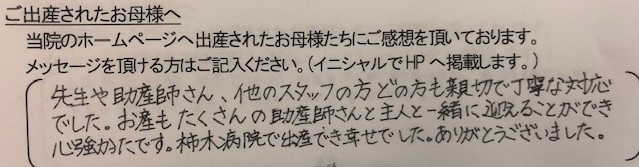 ご出産されたお母様へ
当院のホームページへ出産されたお母様たちにご感想を頂いております。
メッセージを頂ける方はご記入ください。(イニシャルでHPへ掲載します。)
先生や助産師さん、他のスタッフの方どの方も親切で丁寧な対応
でした。お産もたくさんの助産師さんと主人と一緒に迎えることができ
心強かったです。柿木病院で出産でき幸せでした。ありがとうございました。